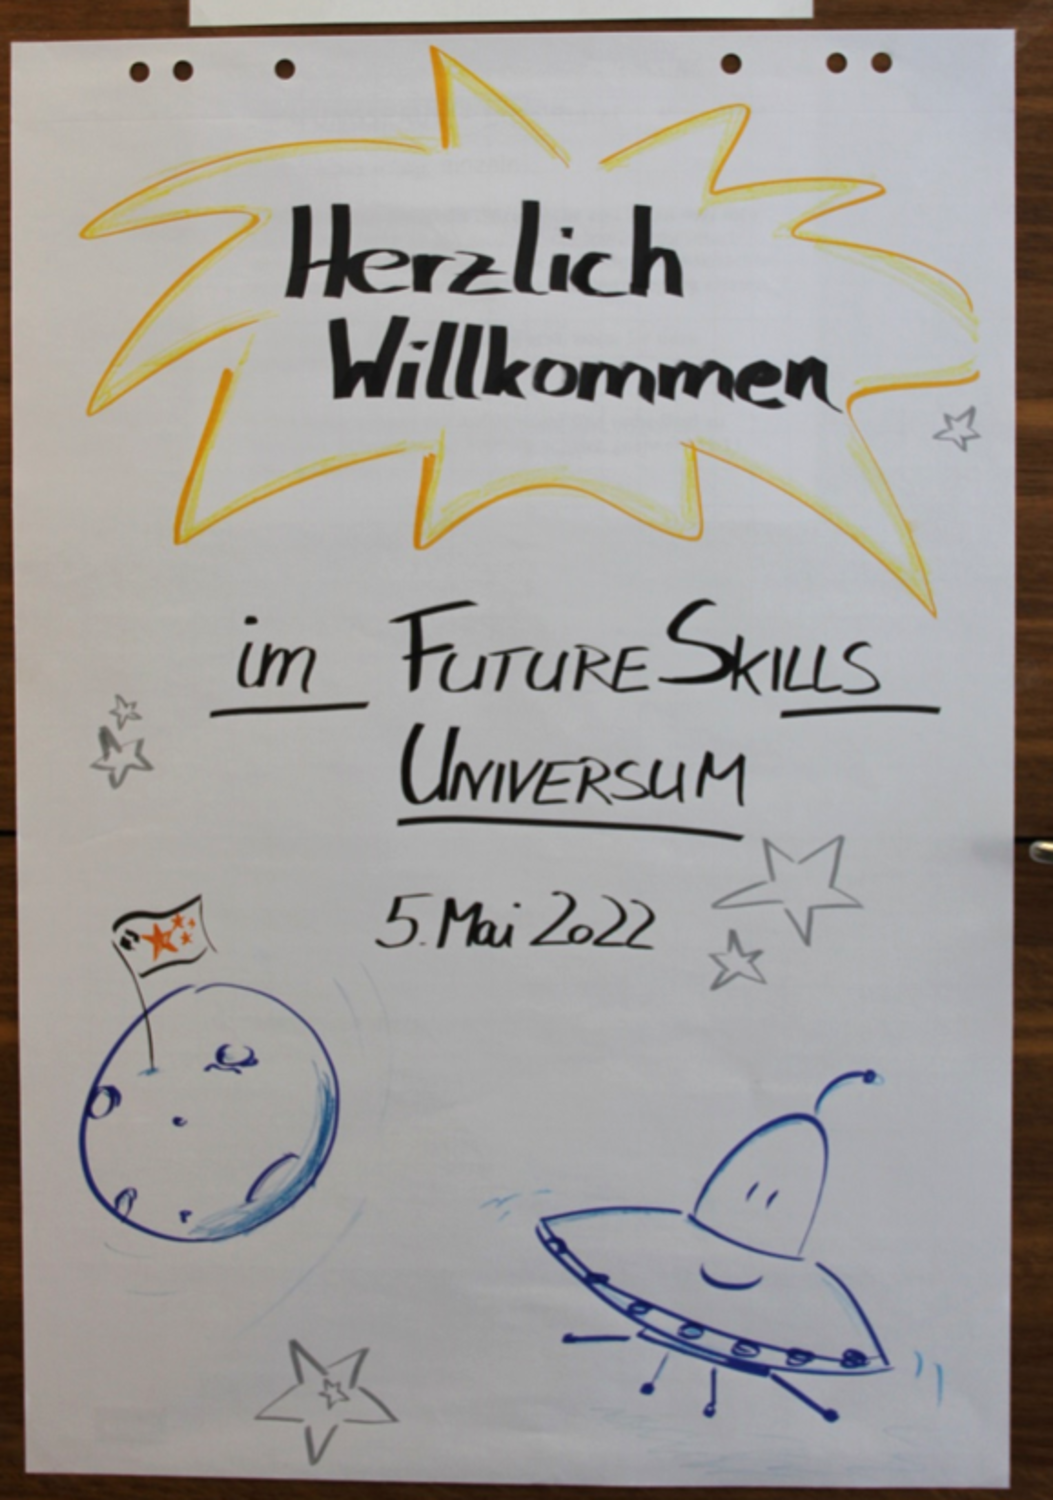 Herzlich
Willkommen
im FUTURESKILLS
UNIVERSUM
5. Mai 2022